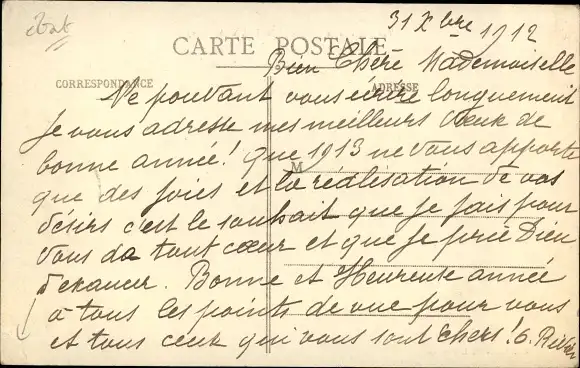 31 Xbre 1912
CARTE POSTALE
Bien Chère Mademoiselle
CORRESPONDANCE
ADRESSE
Ne pouvant vous écrire longuement
Je vous adresse mes meilleurs vœux de
bonne année ! Que 1913 ne vous apporte
M
que des joies et la réalisation de vos
désirs c'est le souhait que je fais pour
vous de tout cœur et que je prie Dieu
d'exaucer. Bonne et Heureuse année
à tous les points de vue pour vous
et tous ceux qui vous sont chers !